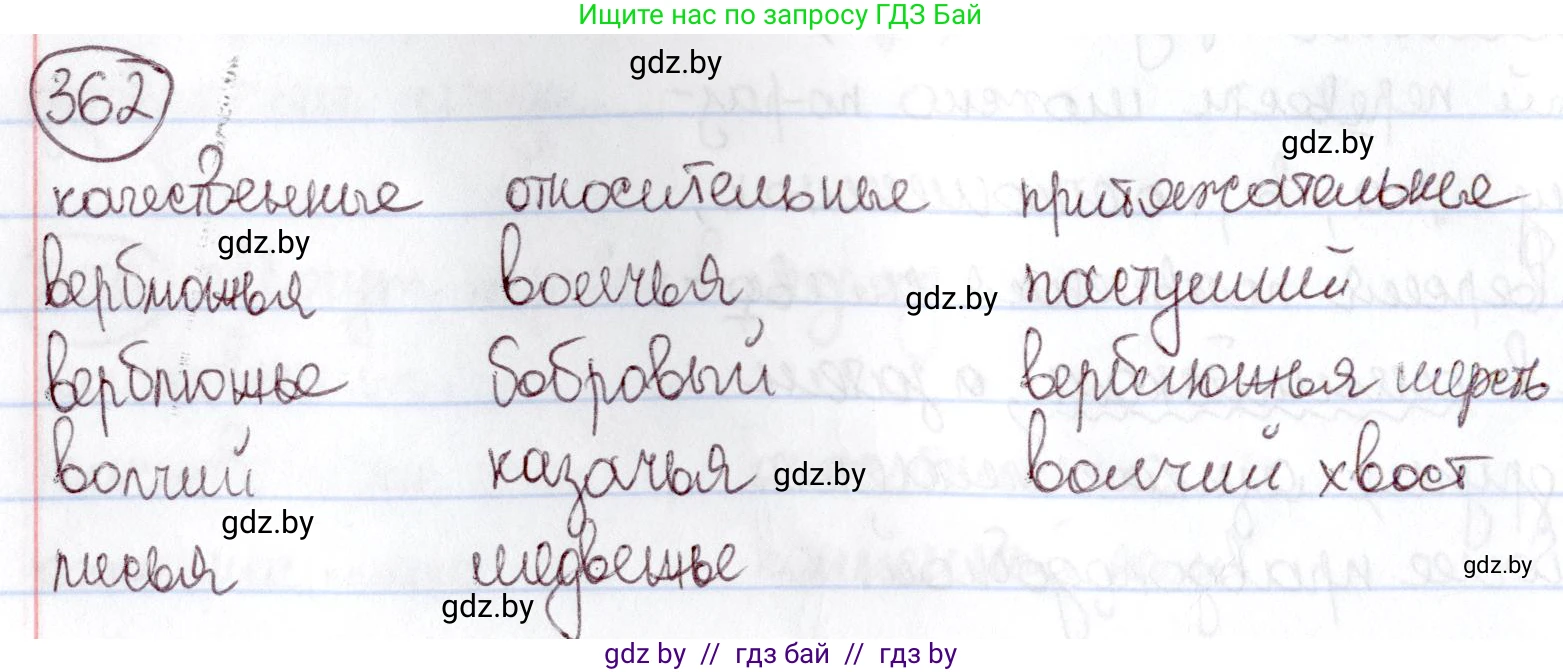 Ищите нас по запросу ГДЗ Бай
gdz.by
362
gdz.by
качественные относительные притяжательные
gdz.by
верблюжья волчья пастуший
gdz.by
верблюжье бобровый верблюжья шерсть
волчий казачья волчий хвост
gdz.by
gdz.by
лисья медвежье
gdz.by
gdz.by
gdz by // гдз бай // гдз by